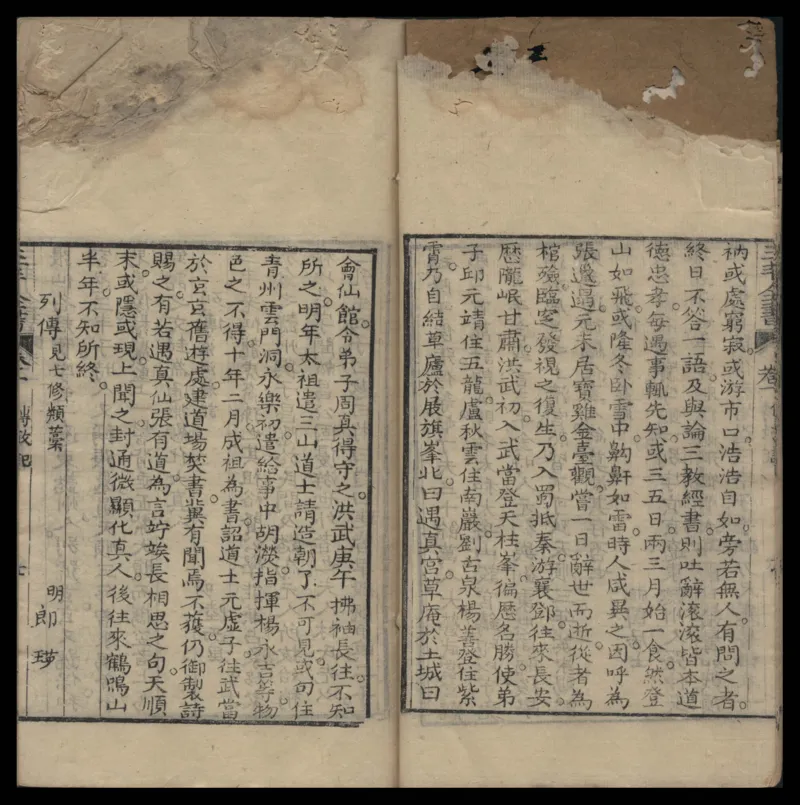 衲或處窮寂或游市口浩浩自如旁若無人有問之者
終日不答一語及與論三教經書則吐辭滚滚皆本道
德忠孝每遇事輒先知或三五日兩三月始一食然登
山如飛或隆冬卧雪中鼾如雷時人咸異之因呼為
張邋遢元末居寶雞金臺觀嘗一日辭世而逝從者為
棺殮臨窆發視之復生乃入蜀抵秦游襄鄧往來長安
歷隴岷甘肅洪武初入武當登天柱峯徧歷名勝使弟
子邱元靖住五龍盧秋雲住南巖劉古泉楊善登住紫
霄乃自結草廬於展旗峯北曰遇真宫草庵於土城曰
會仙館令弟子周真得守之洪武庚午拂袖長往不知
所之明年太祖遣三山道士請造朝了不可見或曰住
青州雲門洞永樂初遣給事中胡濙指揮楊永吉等物
色之不得十年二月成祖為書詔道士元虛子往武當
於玄玄舊遊處建道場焚書冀有聞焉不獲仍御製詩
賜之有若遇真仙張有道為言竚竢長相思之句天順
末或隱或現上聞之封通微顯化真人後往來鶴鳴山
半年不知所終
列傳見七修類藁
明郎瑛